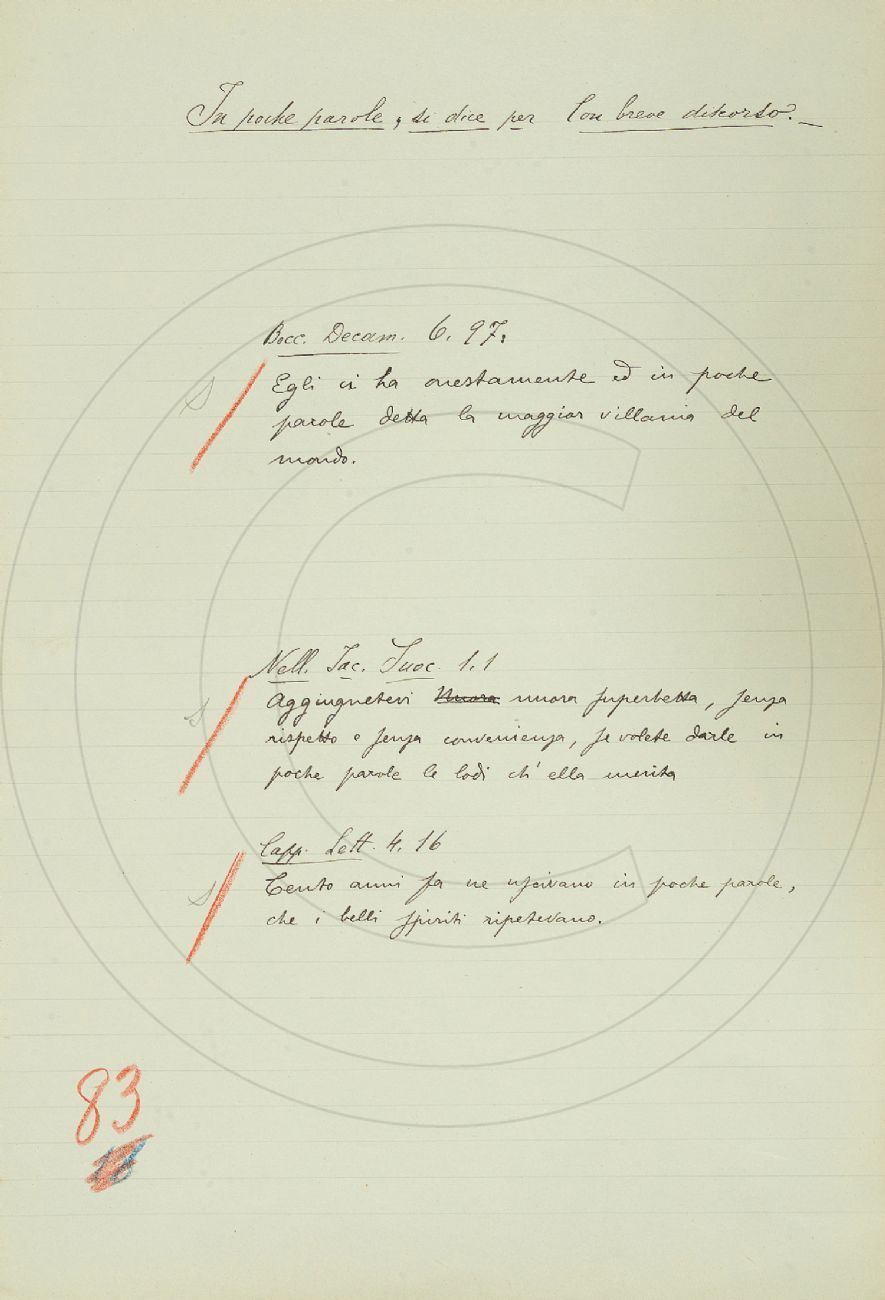 In poche parole, si dice per Con breve discorso.
Bocc. Decam. 6. 97:
Egli ci ha onestamente ed in poche
parole detta la maggior villania del
mondo.
Nell. Jac. Suoc. 1. 1
Aggiugnetevi Nuora nuora superbetta, senza
rispetto e senza convenienza, se volete darle in
poche parole le lodi ch' ella merita
Capp. Lett. 4. 16
Cento anni fa ne uscivano in poche parole,
che i belli spiriti ripetevano.
83